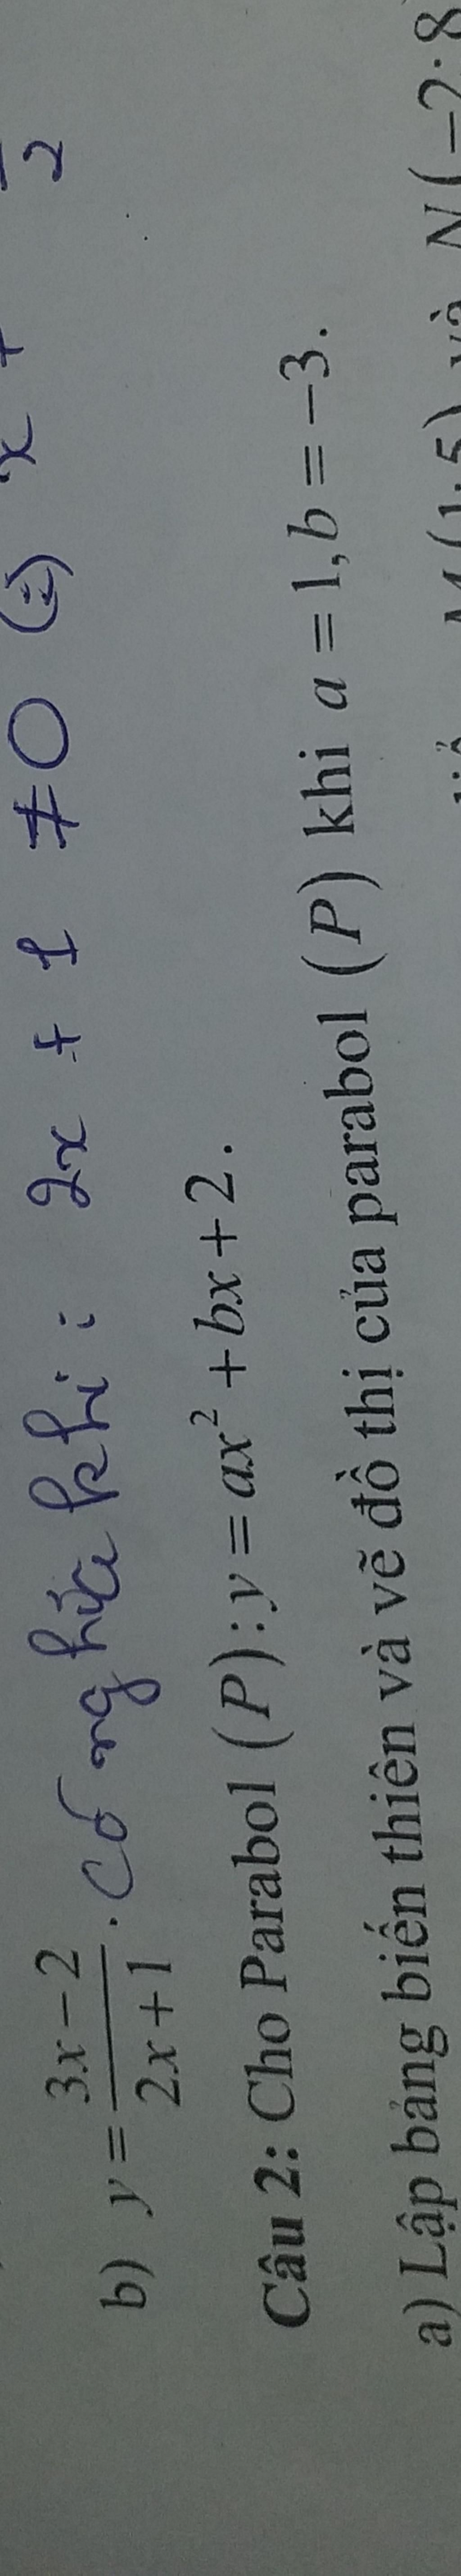 2x + 1 ≠ 0 (=) x +
b) y = \frac{3x-2}{2x+1}. Có nghĩa khi:
Câu 2: Cho Parabol (P): y = ax² + bx + 2.
a) Lập bảng biến thiên và vẽ đồ thị của parabol (P) khi a = 1, b = −3.
M(1;5) và N(−2;8